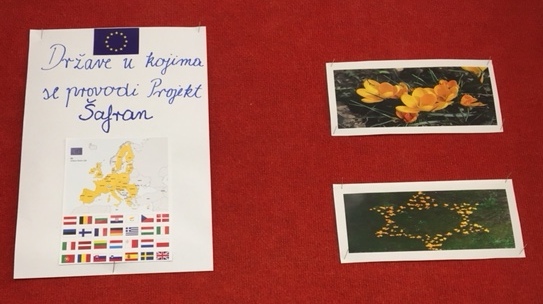 Države u kojima
se provodi Projekt
Šafran